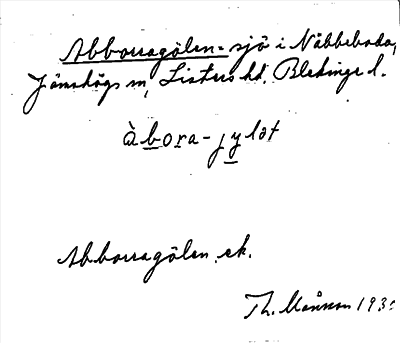 Abborragölen = sjö i Näbbeboda,
Jämshögs sn, Listers hd. Blekinge l.
àbora-jylǝt
Abborragölen, ek.
Th. Månsson 193